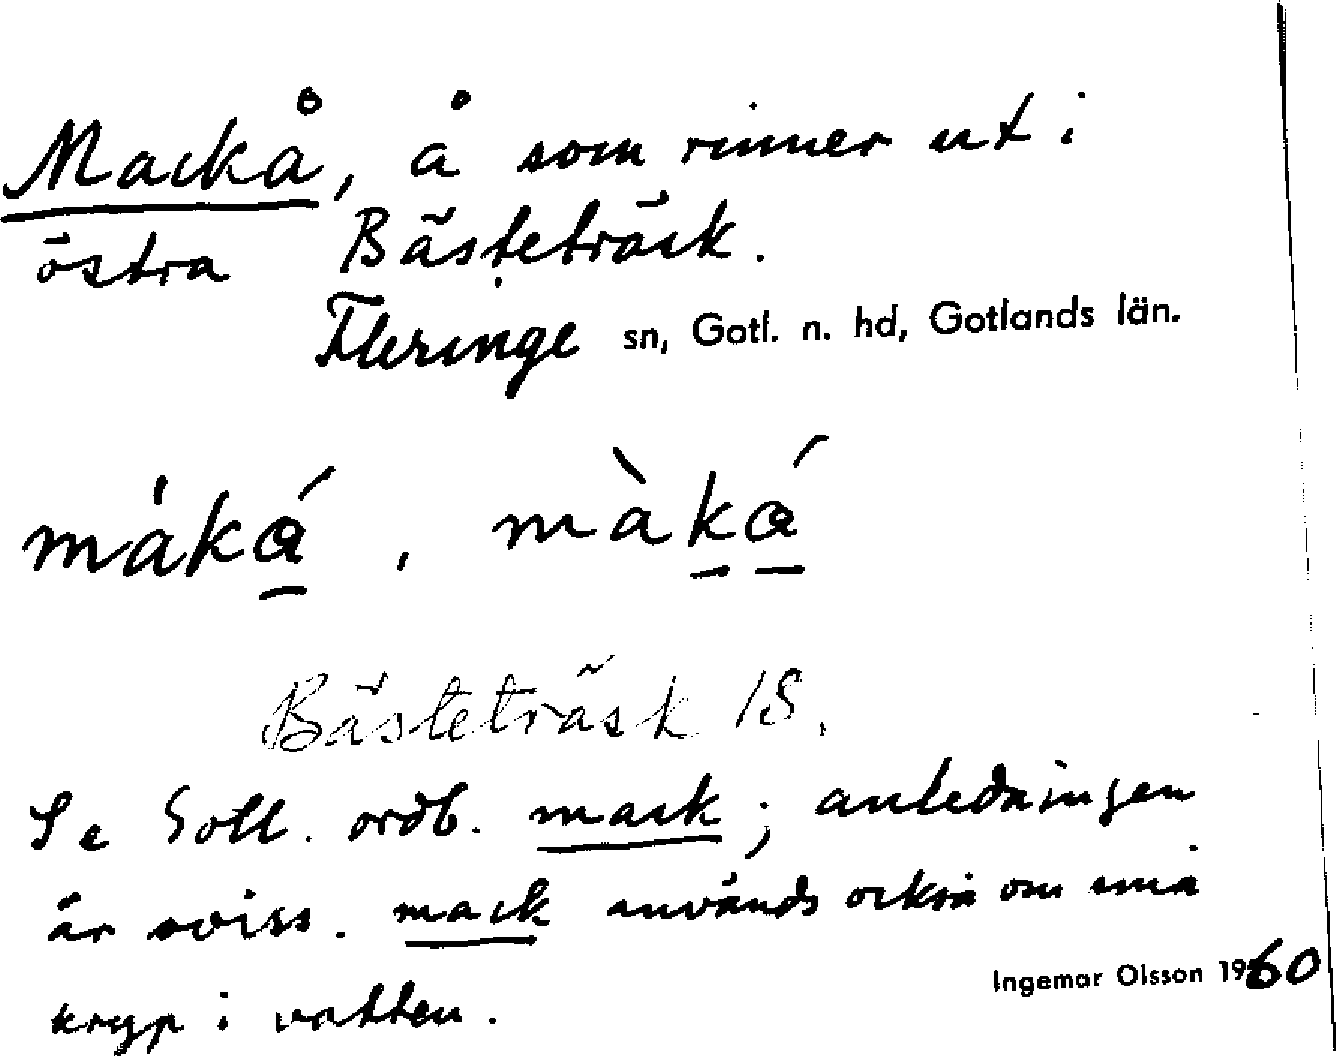 Mackå, å som rinner ut i
östra Bästeträsk.
Fleringe sn, Gotl. n. hd, Gotlands län.
màká, màká
Bästeträsk 18.
Se Gotl. ordb. mack; anledningen
är oviss. mack används också om små
kryp i vatten.
Ingemar Olsson 1960